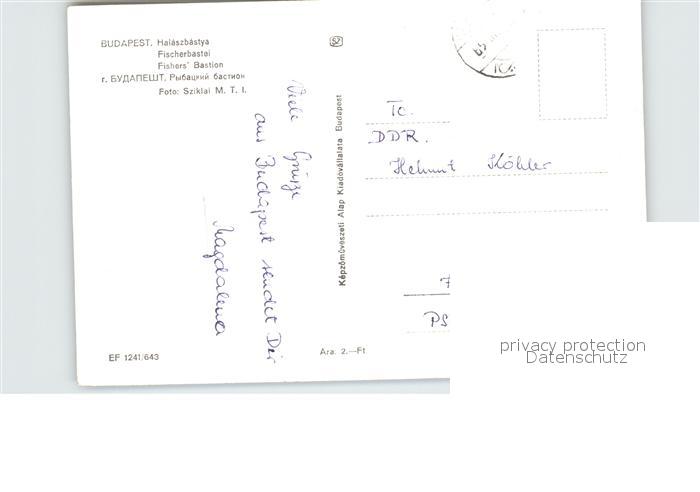 BUDAPEST. Halászbástya
Fischerbastei
Fishers' Bastion
г. БУДАПЕШТ, Рыбацкий бастион
Foto: Sziklai M. T. I.
Viele Grüsze
aus Budapest sendet Dir
Magdalena
EF 1241/643
Ara. 2.—Ft
Képzőművészeti Alap Kiadóvállalata Budapest
DDR.
Helmut Köhler
7
PS
privacy protection
Datenschutz